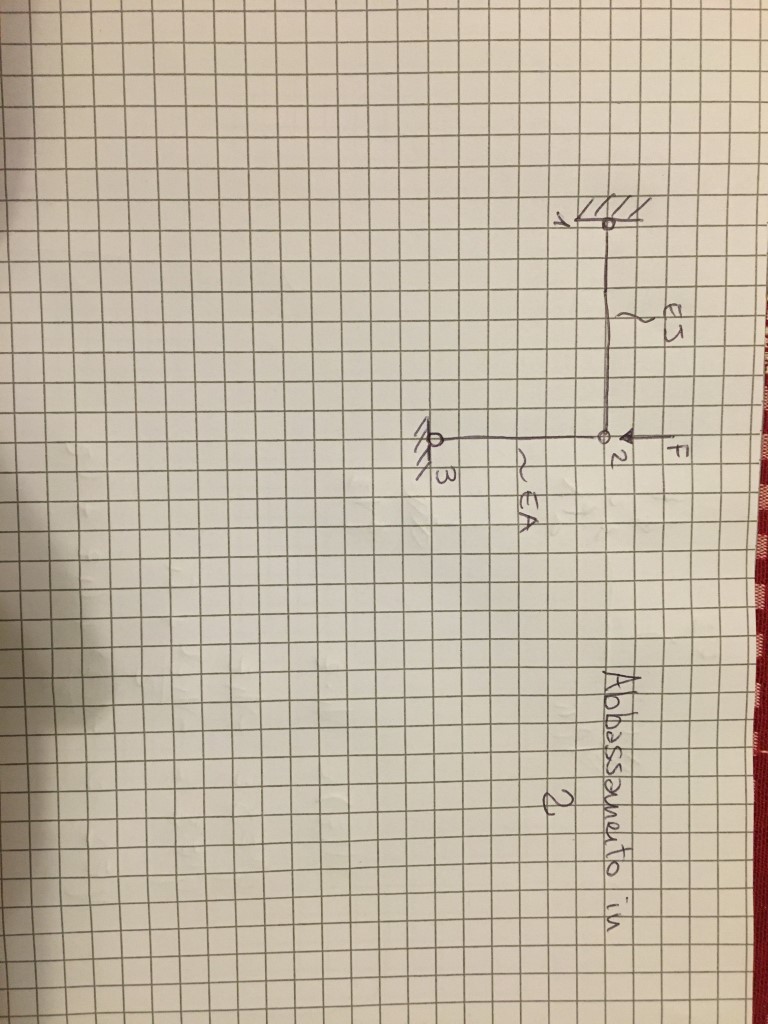 F
EJ
1
2
~EA
3
Abbassamento in
2